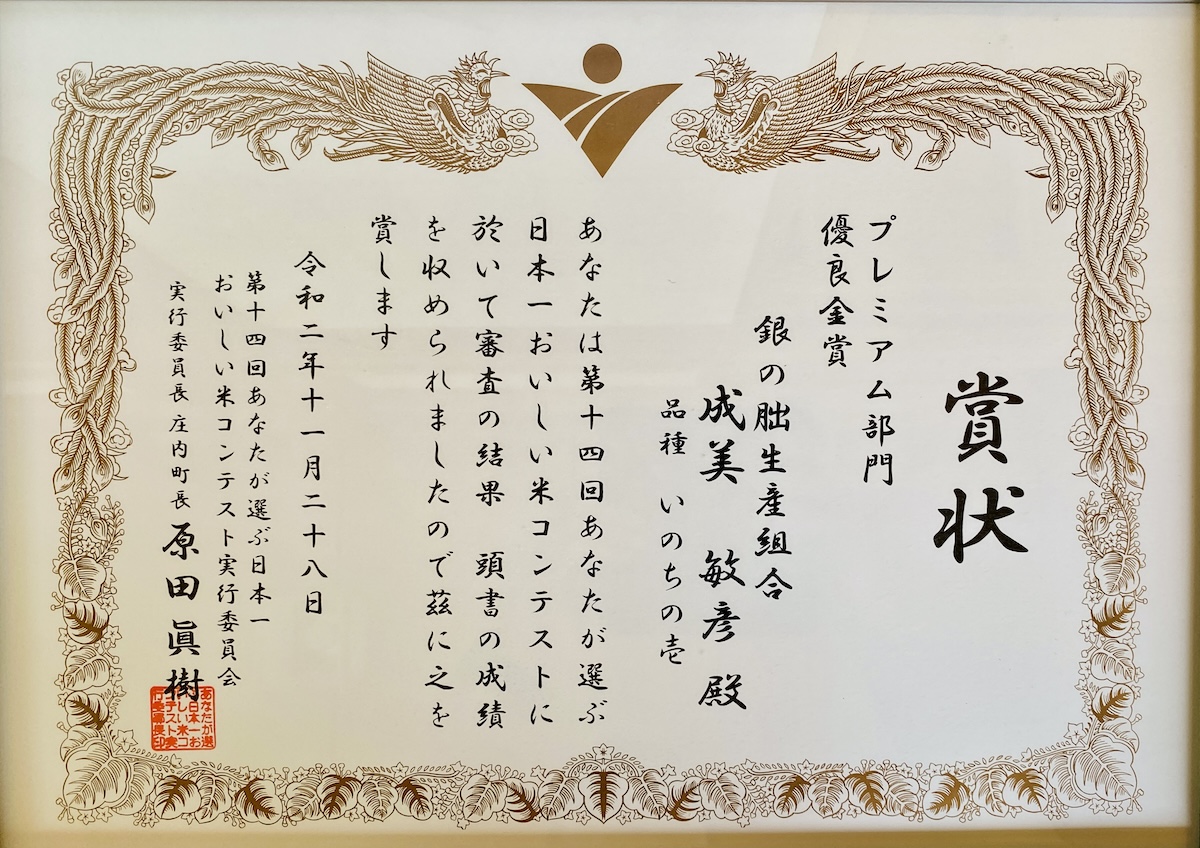 賞状
プレミアム部門
優良金賞
銀の朏生産組合
成美 敏彦 殿
品種 いのちの壱
あなたは第十四回あなたが選ぶ
日本一おいしい米コンテストに
於いて審査の結果 頭書の成績
を収められましたので茲に之を
賞します
令和二年十一月二十八日
第十四回あなたが選ぶ日本一
おいしい米コンテスト実行委員会
実行委員長 庄内町長 原田眞樹
あなたが選
ぶ日本一お
いしい米コ
ンテスト実
行委員長印